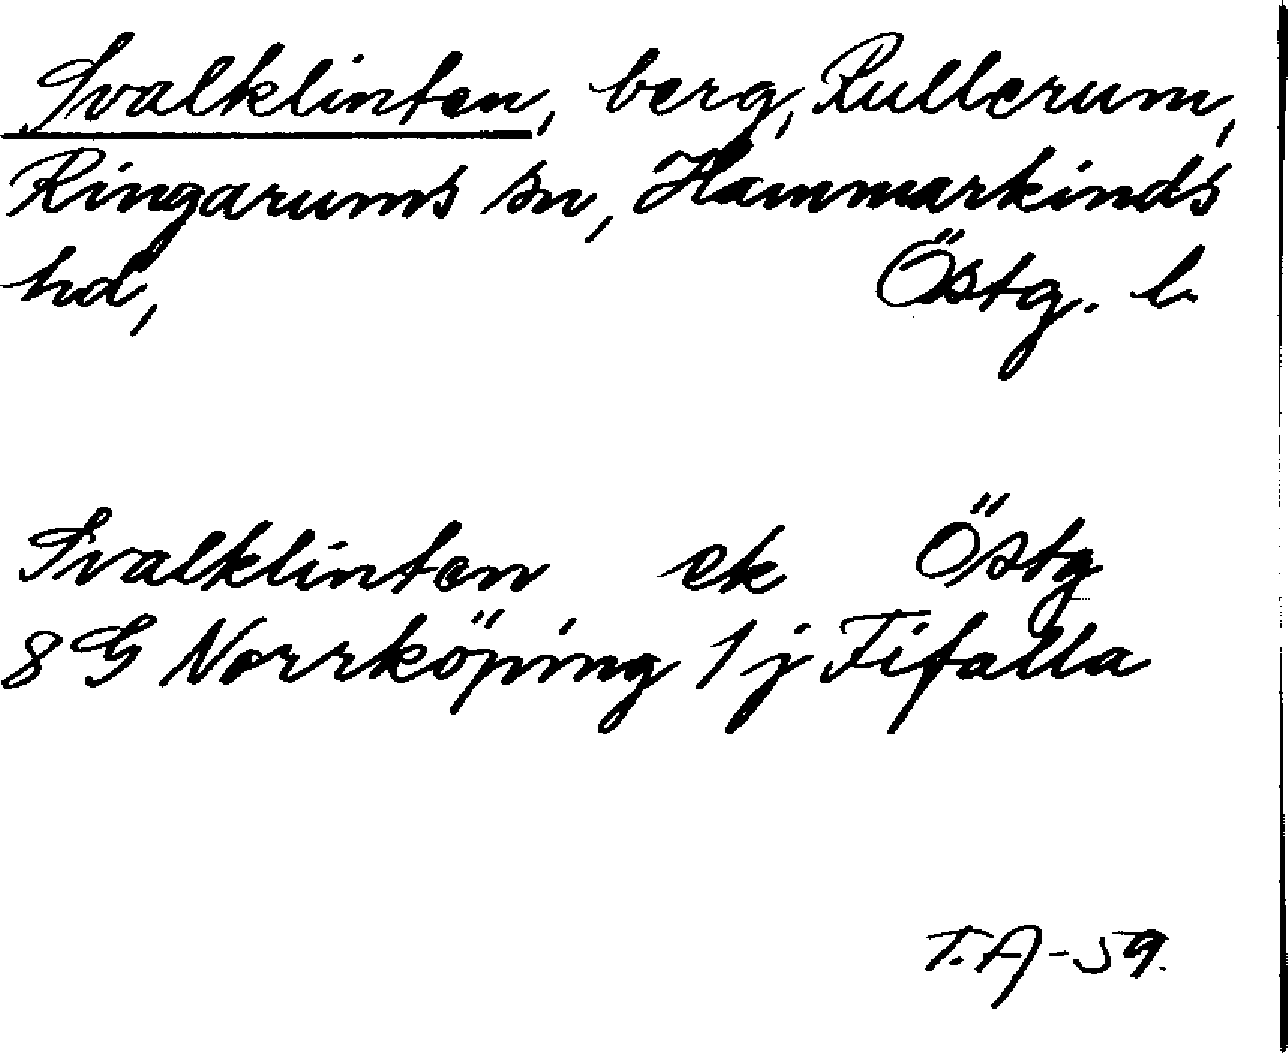 Svalklinten, berg, Rullerum,
Ringarums sn, Hammarkinds
hd, Östg. l.
Svalklinten ek Östg
8 G Norrköping 1 j Fifalla
T.A-59.